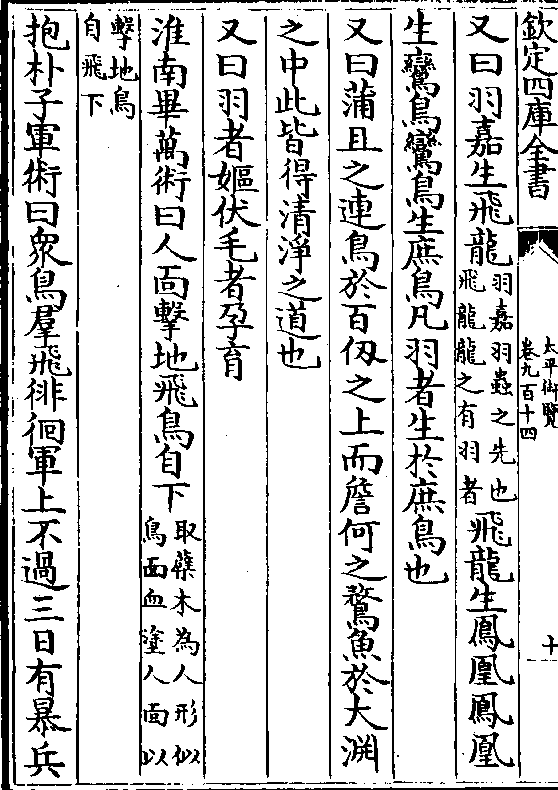 欽定四庫全書
太平御覽
卷九百十四
十
又曰羽嘉生飛龍羽嘉羽蟲之先也飛龍龍之有羽者飛龍生鳳凰鳳凰
生鸞鳥鸞鳥生庶鳥凡羽者生於庶鳥也
又曰蒲且之連鳥於百仭之上而詹何之鶩魚於大淵
之中此皆得清淨之道也
又曰羽者嫗伏毛者孕育
淮南畢萬術曰人靣擊地飛鳥自下取蘗木為人形似鳥靣血塗人靣以
擊地鳥自飛下
抱朴子軍術曰衆鳥羣飛徘徊軍上不過三日有暴兵